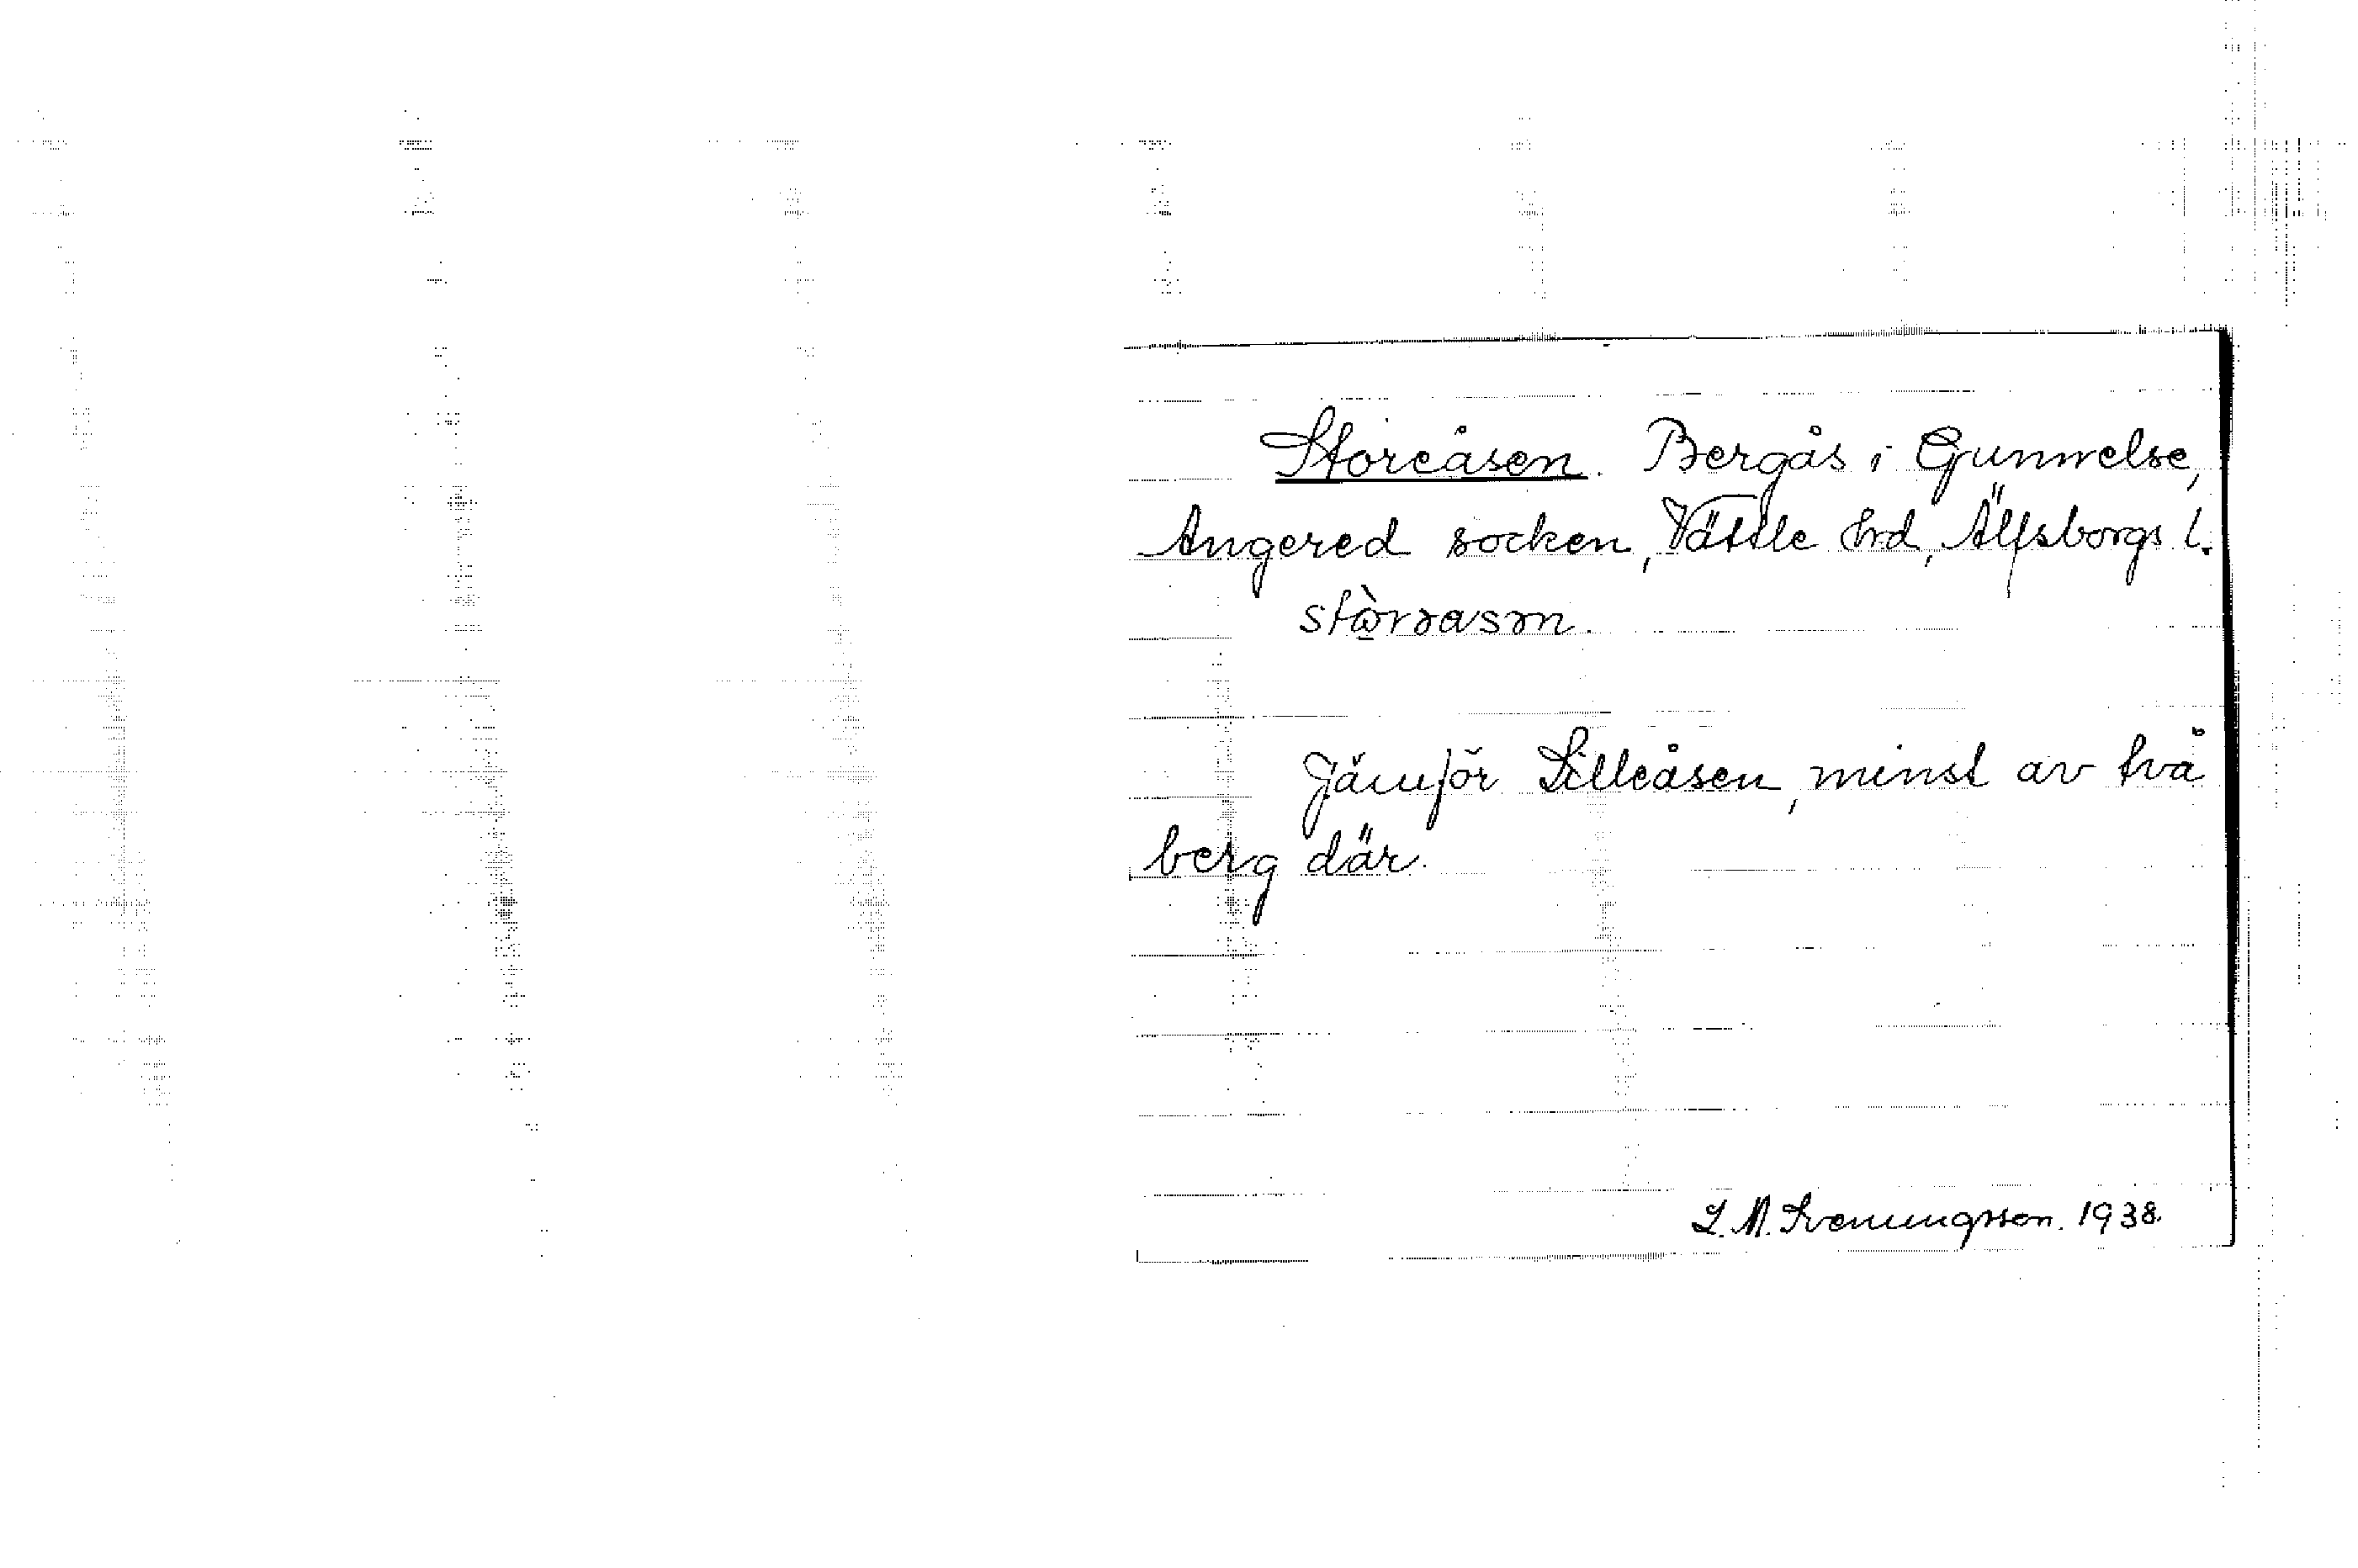 Storeåsen. Bergås i Gunnelse,
Angered socken, Vättle hrd, Älfsborgs l.
Jämför Lilleåsen, minst av två
berg där.
L. M. Svenungsson. 1938.